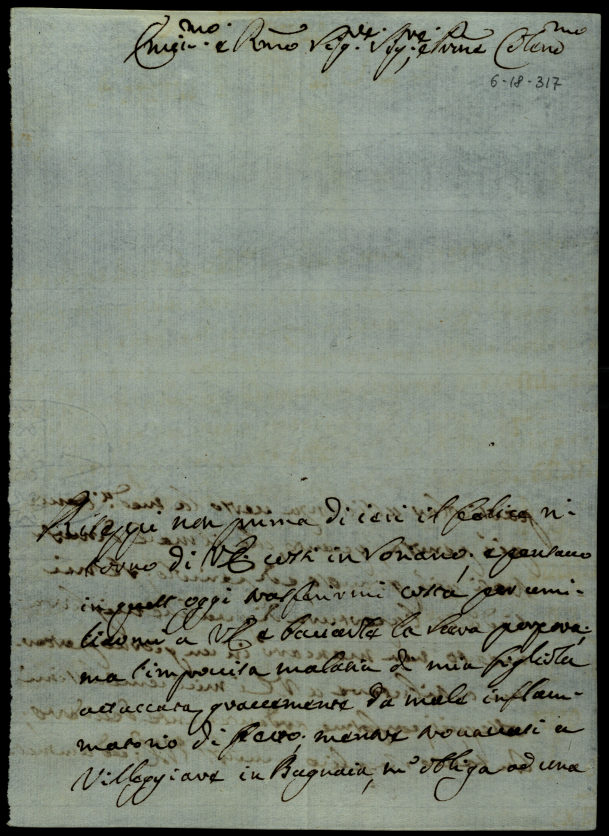 Emin.mo e Rmo Sig.re Sig.re e Prne Colenmo
6-18-317
Riseppi non prima di ieri il felice ri-
torno di VE costì in Soriano, e pensavo
in quest'oggi trasferirmi costà per umi-
liarmi a VE e baciarle la Sacra porpora,
ma l'improvisa malatia di mia figliola
attaccata gravemente da male inflam-
matorio di petto, mentre trovavasi a
Villeggiare in Bagnaia, m'obliga ad una